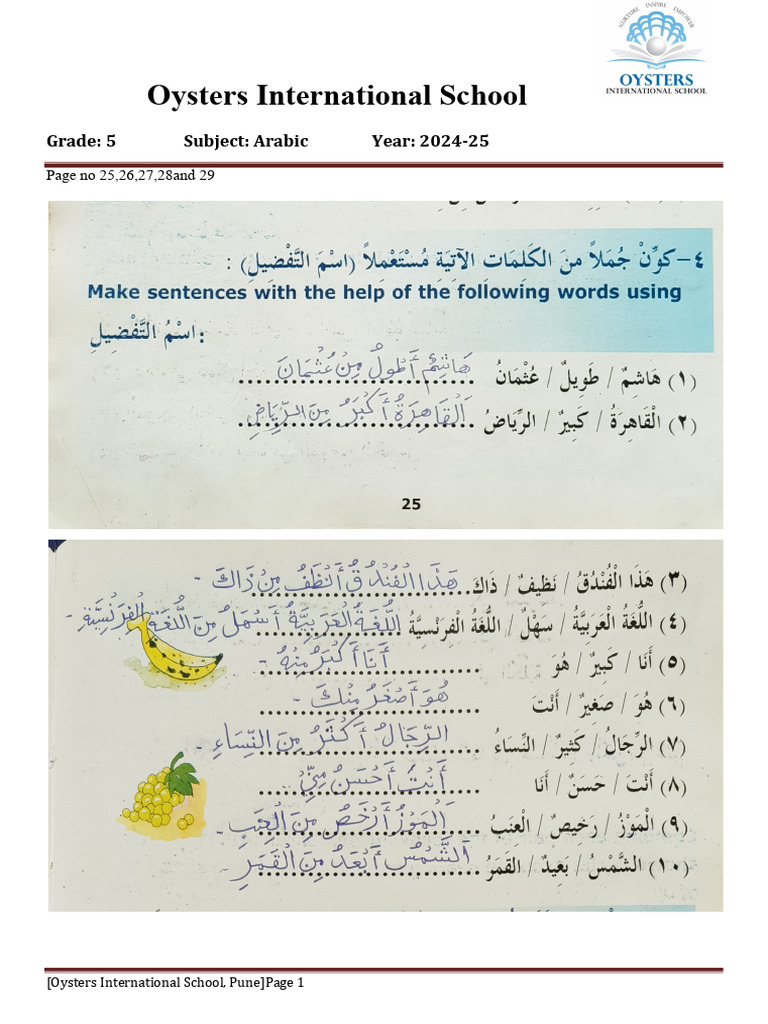 NURTURE INSPIRE EMPOWER
OYSTERS
INTERNATIONAL SCHOOL
Oysters International School
Grade: 5 Subject: Arabic Year: 2024-25
Page no 25,26,27,28and 29
٤- كَوِّنْ جُمَلاً مِنَ الكَلِمَاتِ الآتِيَةِ مُسْتَعْمِلاً (اسْمَ التَّفْضِيلِ) :
Make sentences with the help of the following words using
اسْمُ التَّفْضِيلِ:
(١) هَاشِمٌ / طَوِيلٌ / عُثْمَانُ هَاشِمٌ أَطْوَلُ مِنْ عُثْمَانَ
(٢) الْقَاهِرَةُ / كَبِيرٌ / الرِّيَاضُ اَلْقَاهِرَةُ أَكْبَرُ مِنَ الرِّيَاضِ
25
(٣) هَذَا الْفُنْدُقُ / نَظِيفٌ / ذَاكَ هَذَا الْفُنْدُقُ أَنْظَفُ مِنْ ذَاكَ -
(٤) اللُّغَةُ الْعَرَبِيَّةُ / سَهْلٌ / اللُّغَةُ الْفِرَنْسِيَّةُ اللُّغَةُ الْعَرَبِيَّةُ أَسْهَلُ مِنَ اللُّغَةِ الْفِرَنْسِيَّةِ -
(٥) أَنَا / كَبِيرٌ / هُوَ أَنَا أَكْبَرُ مِنْهُ -
(٦) هُوَ / صَغِيرٌ / أَنْتَ هُوَ أَصْغَرُ مِنْكَ -
(٧) الرِّجَالُ / كَثِيرٌ / النِّسَاءُ الرِّجَالُ أَكْثَرُ مِنَ النِّسَاءِ -
(٨) أَنْتَ / حَسَنٌ / أَنَا أَنْتَ أَحْسَنُ مِنِّيْ
(٩) الْمَوْزُ / رَخِيصٌ / الْعِنَبُ اَلْمَوْزُ أَرْخَصُ مِنَ الْعِنَبِ -
(١٠) الشَّمْسُ / بَعِيدٌ / القَمَرُ اَلشَّمْسُ أَبْعَدُ مِنَ الْقَمَرِ
[Oysters International School, Pune]Page 1